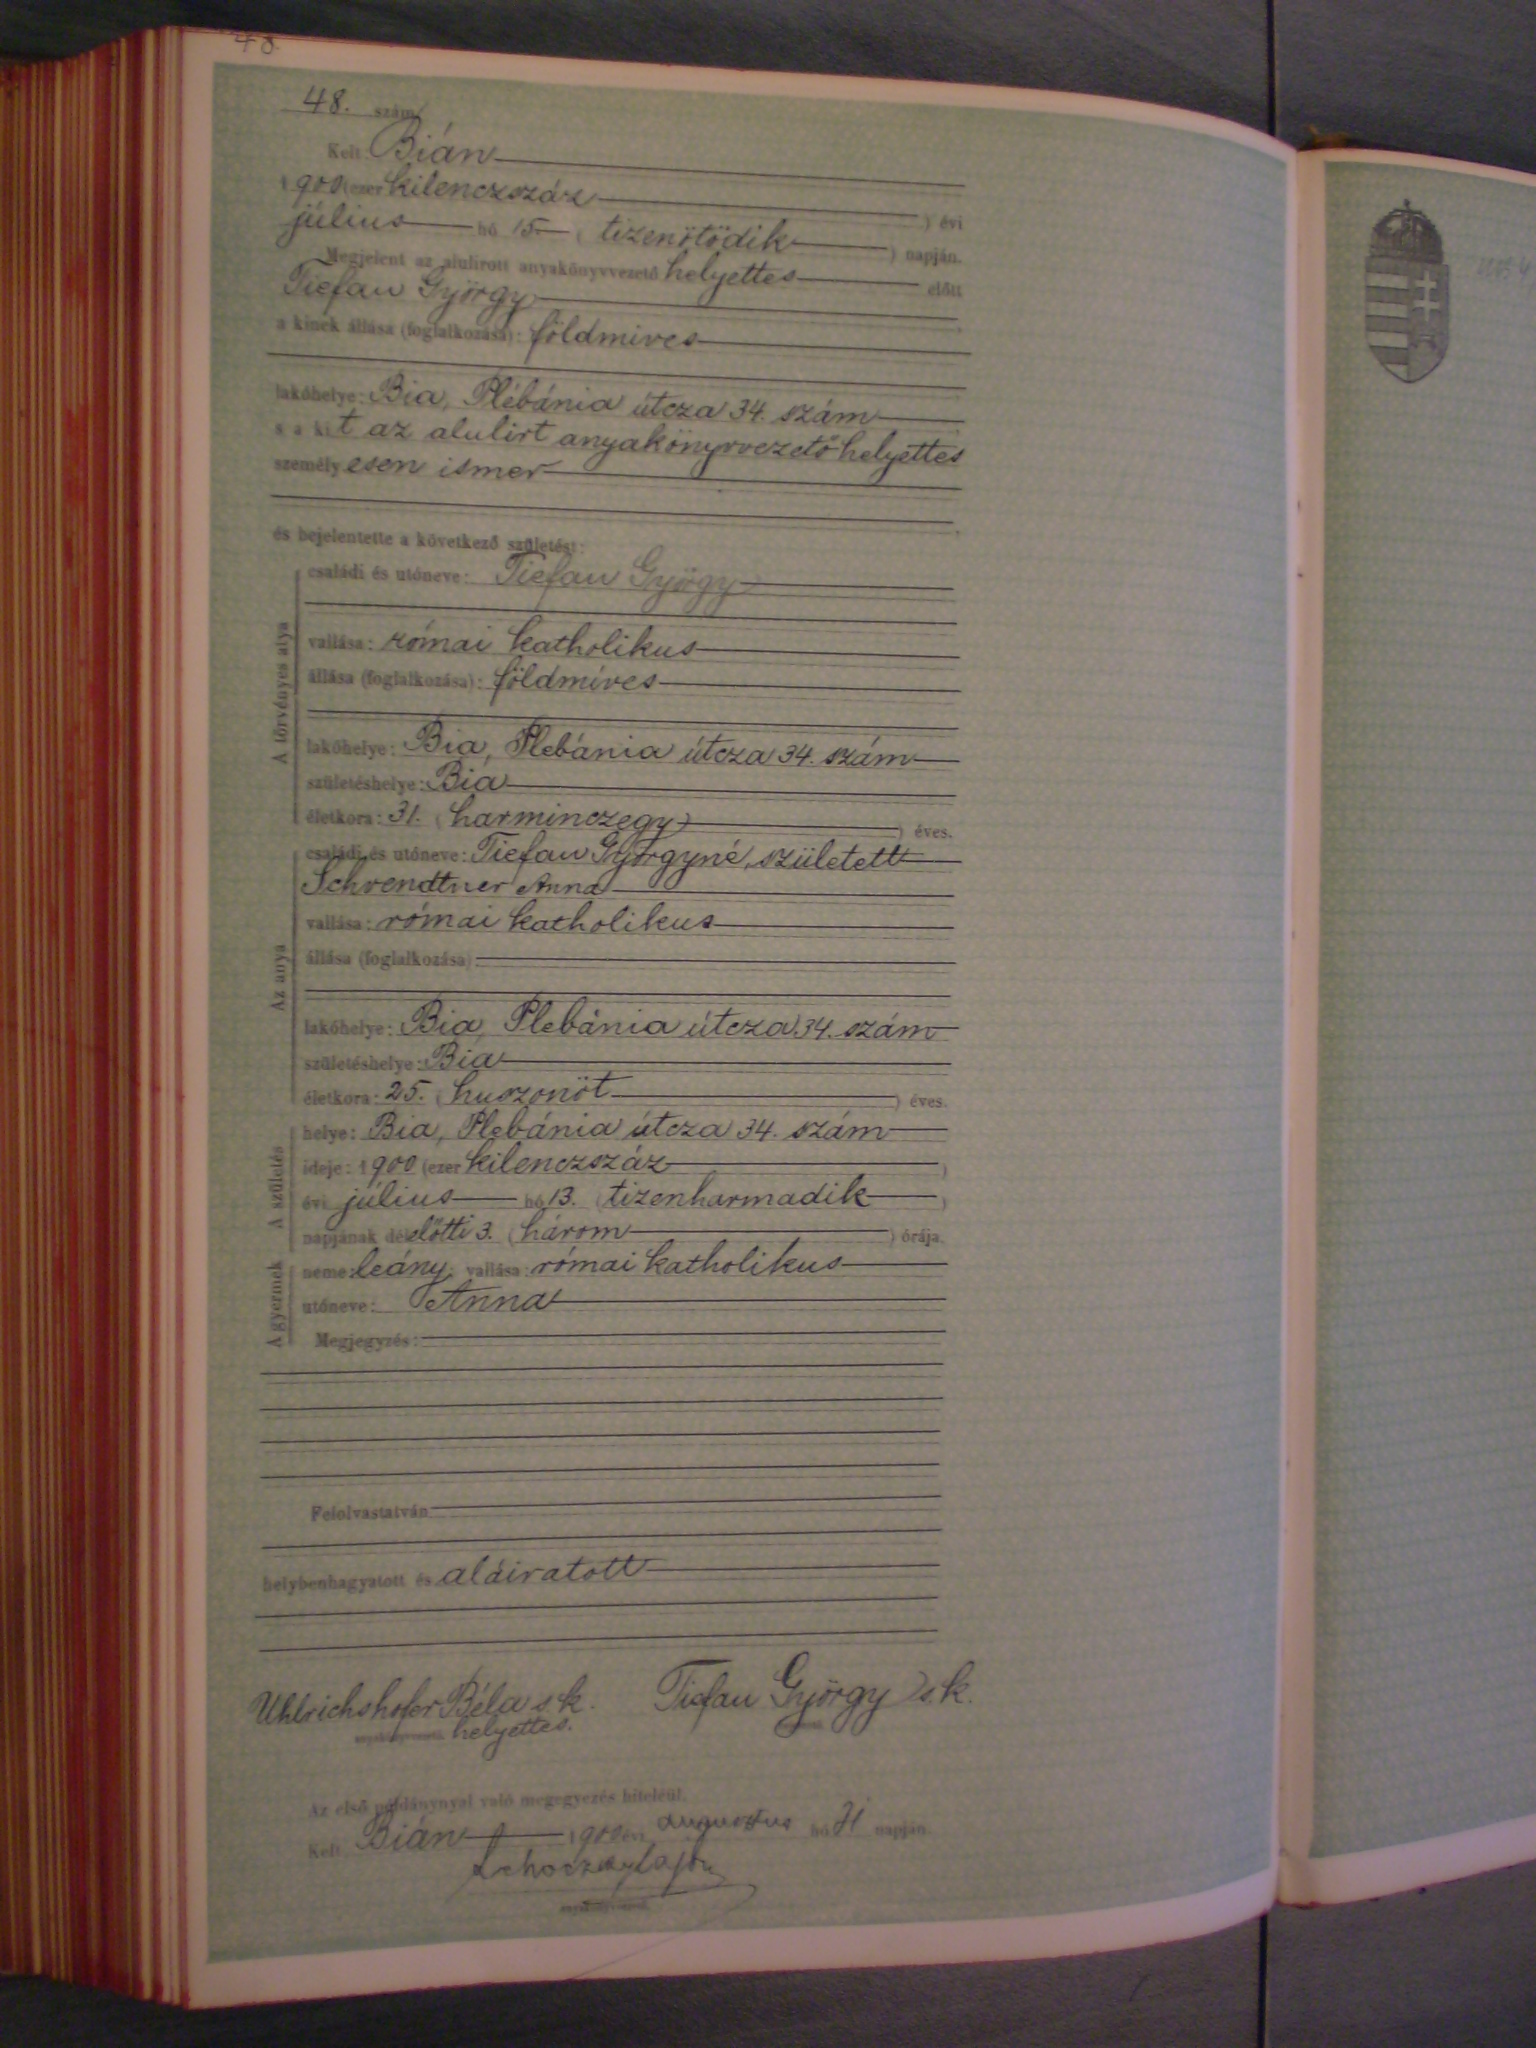 48
48. szám
Kelt Bián
1900 (ezer kilenczszáz ) évi
július hó 15 ( tizenötödik ) napján.
Megjelent az alulirott anyakönyvvezető helyettes előtt
Tiefau György
a kinek állása (foglalkozása): földmives
lakóhelye: Bia, Plébánia útcza 34. szám
s a kit az alulirt anyakönyvvezető helyettes
személyesen ismer
és bejelentette a következő születést:
A törvényes atya
családi és utóneve: Tiefau György
vallása: római katholikus
állása (foglalkozása): földmíves
lakóhelye: Bia, Plebánia útcza 34. szám
születéshelye: Bia
életkora: 31. (harminczegy) éves.
Az anya
családi és utóneve: Tiefau Györgyné, született
Schrendtner Anna
vallása: római katholikus
állása (foglalkozása):
lakóhelye: Bia, Plebánia útcza 34. szám
születéshelye: Bia
életkora: 25. (huszonöt ) éves.
A születés
helye: Bia, Plebánia útcza 34. szám
ideje: 1900 (ezer kilenczszáz )
évi július hó 13. (tizenharmadik )
napjának délelőtti 3. (három ) órája.
A gyermek
neme: leány; vallása: római katholikus
utóneve: Anna
Megjegyzés:
Felolvastatván
helybenhagyatott és aláiratott
Uhlrichshofer Béla s.k. Tiefau György s.k.
helyettes.
Az első példánynyal való megegyezés hiteléül.
Kelt Bián 1900 évi augusztus hó 21 napján.
anyakönyvvezető